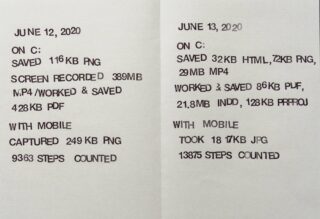 JUNE 12, 2020
ON C:
SAVED 116KB PNG
SCREEN RECORDED 389MB
MP4/WORKED & SAVED
428KB PDF
WITH MOBILE
CAPTURED 249KB PNG
9363 STEPS COUNTED
JUNE 13, 2020
ON C:
SAVED 32KB HTML, 72KB PNG,
29MB MP4
WORKED & SAVED 86KB PDF,
21,8MB INDD, 128KB PRPROJ
WITH MOBILE
TOOK 18 17KB JPG
13875 STEPS COUNTED